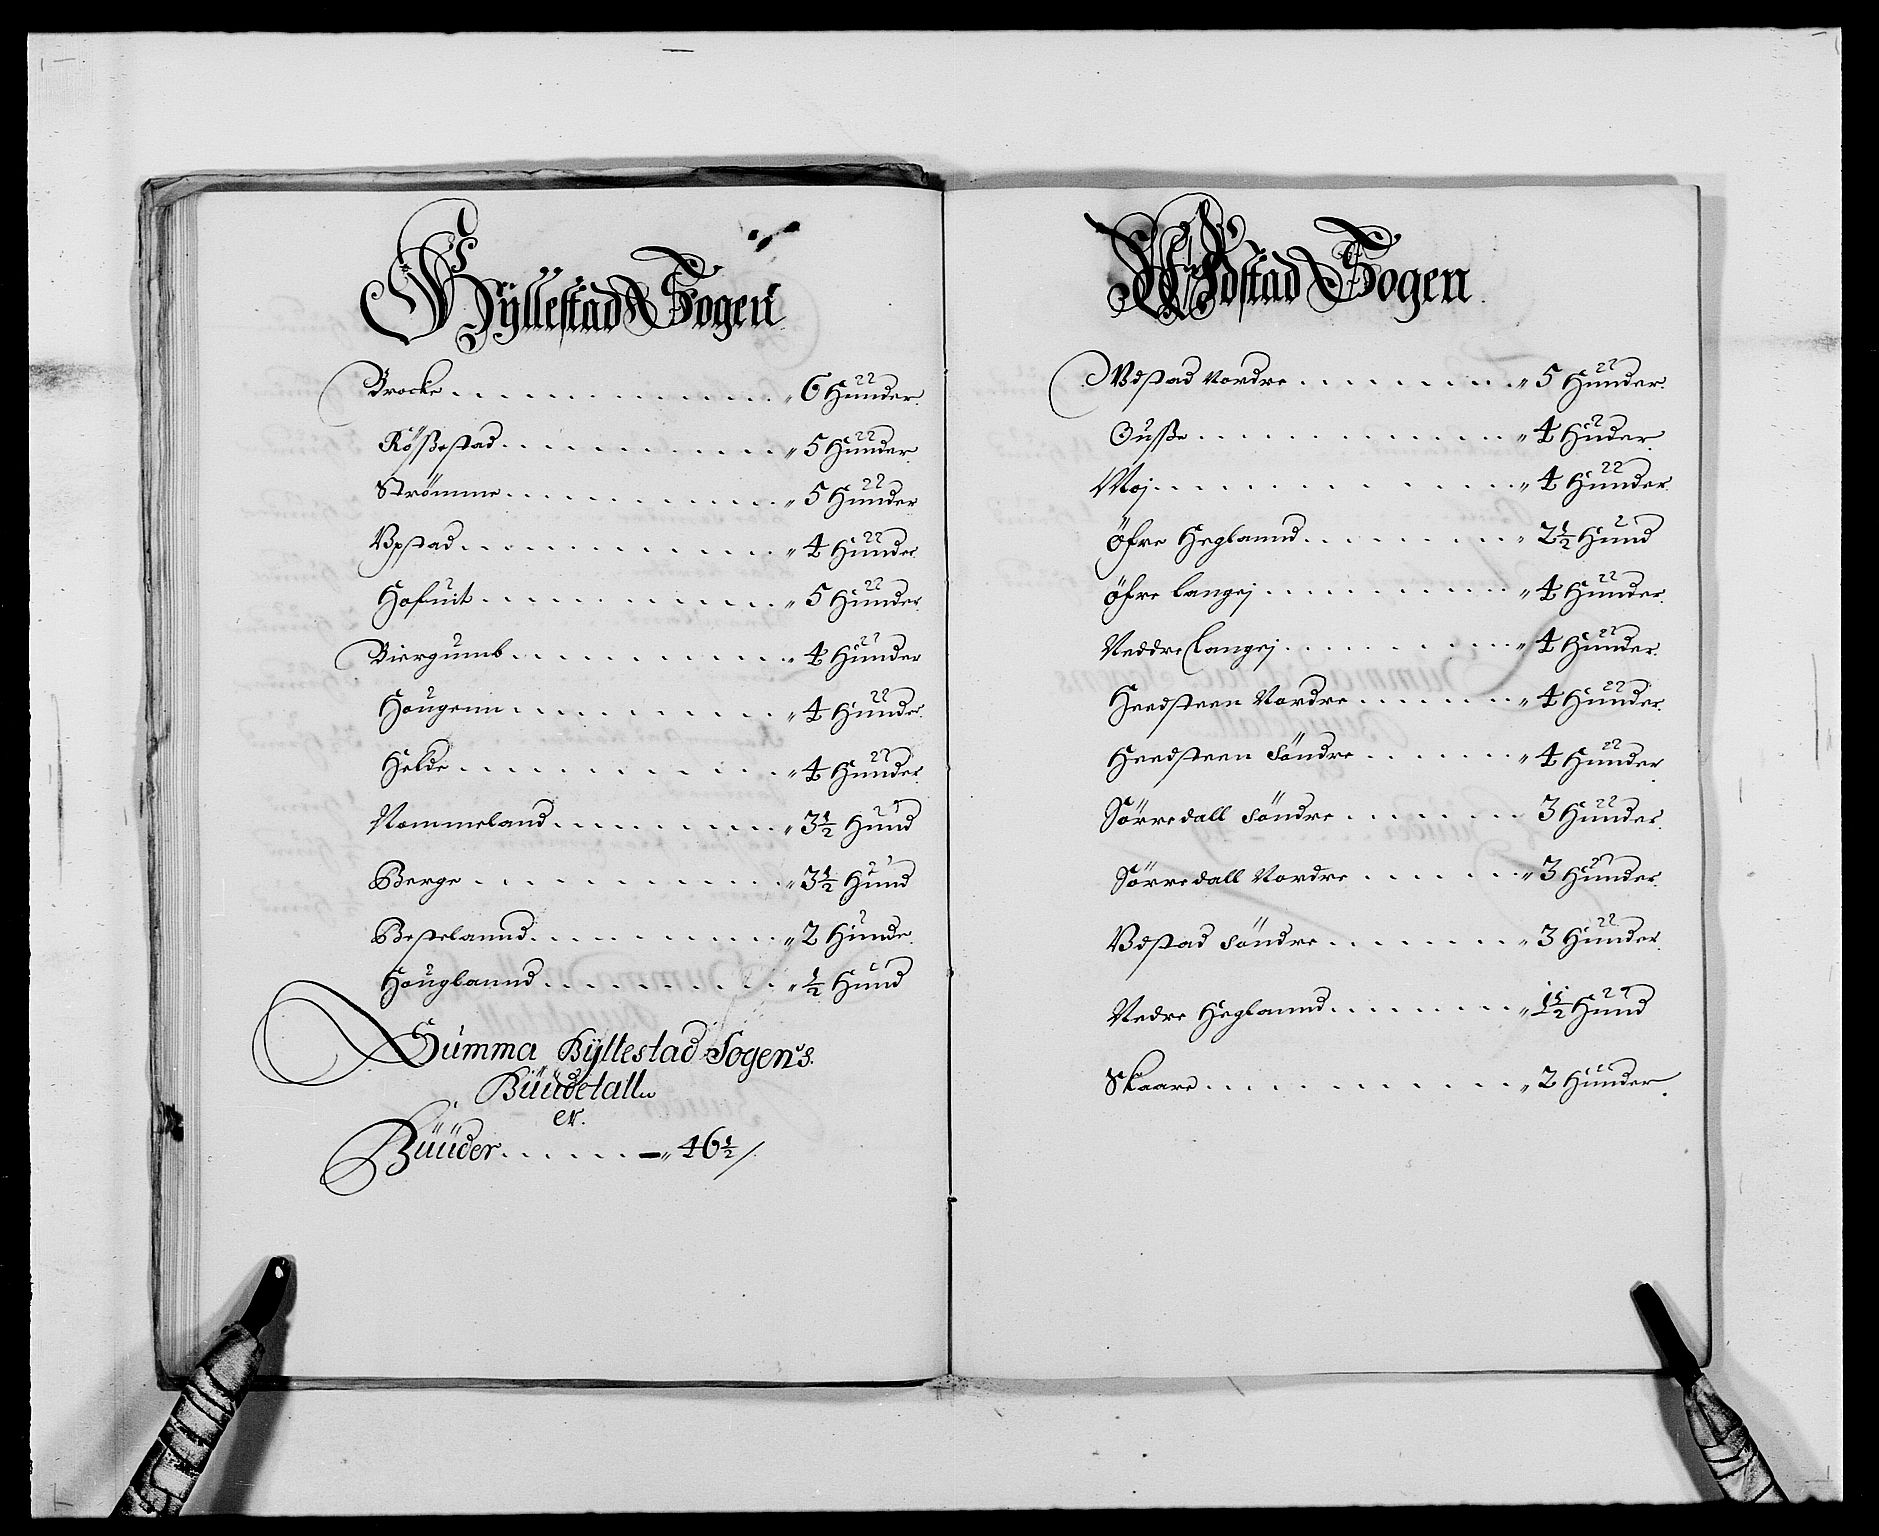 Byllestad Sogen
Brocke . . . . . . . . . . . . . „ 6 Hunder.
Rößestad . . . . . . . . . . . „ 5 Hunder.
Strømme . . . . . . . . . . . „ 5 Hunder
Vpstad . . . . . . . . . . . . . „ 4 Hunder
Hofuit . . . . . . . . . . . . „ 5 Hunder.
Biergumb . . . . . . . . . . . „ 4 Hunder
Hougenn . . . . . . . . . . . „ 4 Hunder.
Helde . . . . . . . . . . . . . „ 4 Hunder.
Nommeland . . . . . . . . . „ 3½ Hund
Berge . . . . . . . . . . . . „ 3½ Hund
Bestelannd . . . . . . . . . . „ 2 Hunde.
Houglannd . . . . . . . . . „ ½ Hund
Summa Byllestad Sogens.
Huudetall
er.
Huuder . . . . . . — „ 46½ /.
Wdstad Sogen
Vdstad Nordre . . . . . . . . . „ 5 Hunder.
Ousße . . . . . . . . . . . . . „ 4 Huder
Moj . . . . . . . . . . . . . . „ 4 Hunder
Öfre Heglannd . . . . . . . . „ 2½ Hund
Öfre Langej . . . . . . . . . . „ 4 Hunder.
Neddre Langej . . . . . . . . . „ 4 Hunder.
Heedsteen Nordre . . . . . . . „ 4 Hunder.
Heedsteen Söndre . . . . . . . „ 4 Hunder
Sörredall Söndre . . . . . . . 3 Hunder.
Sörredall Nordre . . . . . . . „ 3 Hunder.
Vdstad Söndre . . . . . . . . „ 3 Hunder.
Nedre Heglannd . . . . . . . . „ 1½ Hund
Skaare . . . . . . . . . . . . „ 2 Hunder.